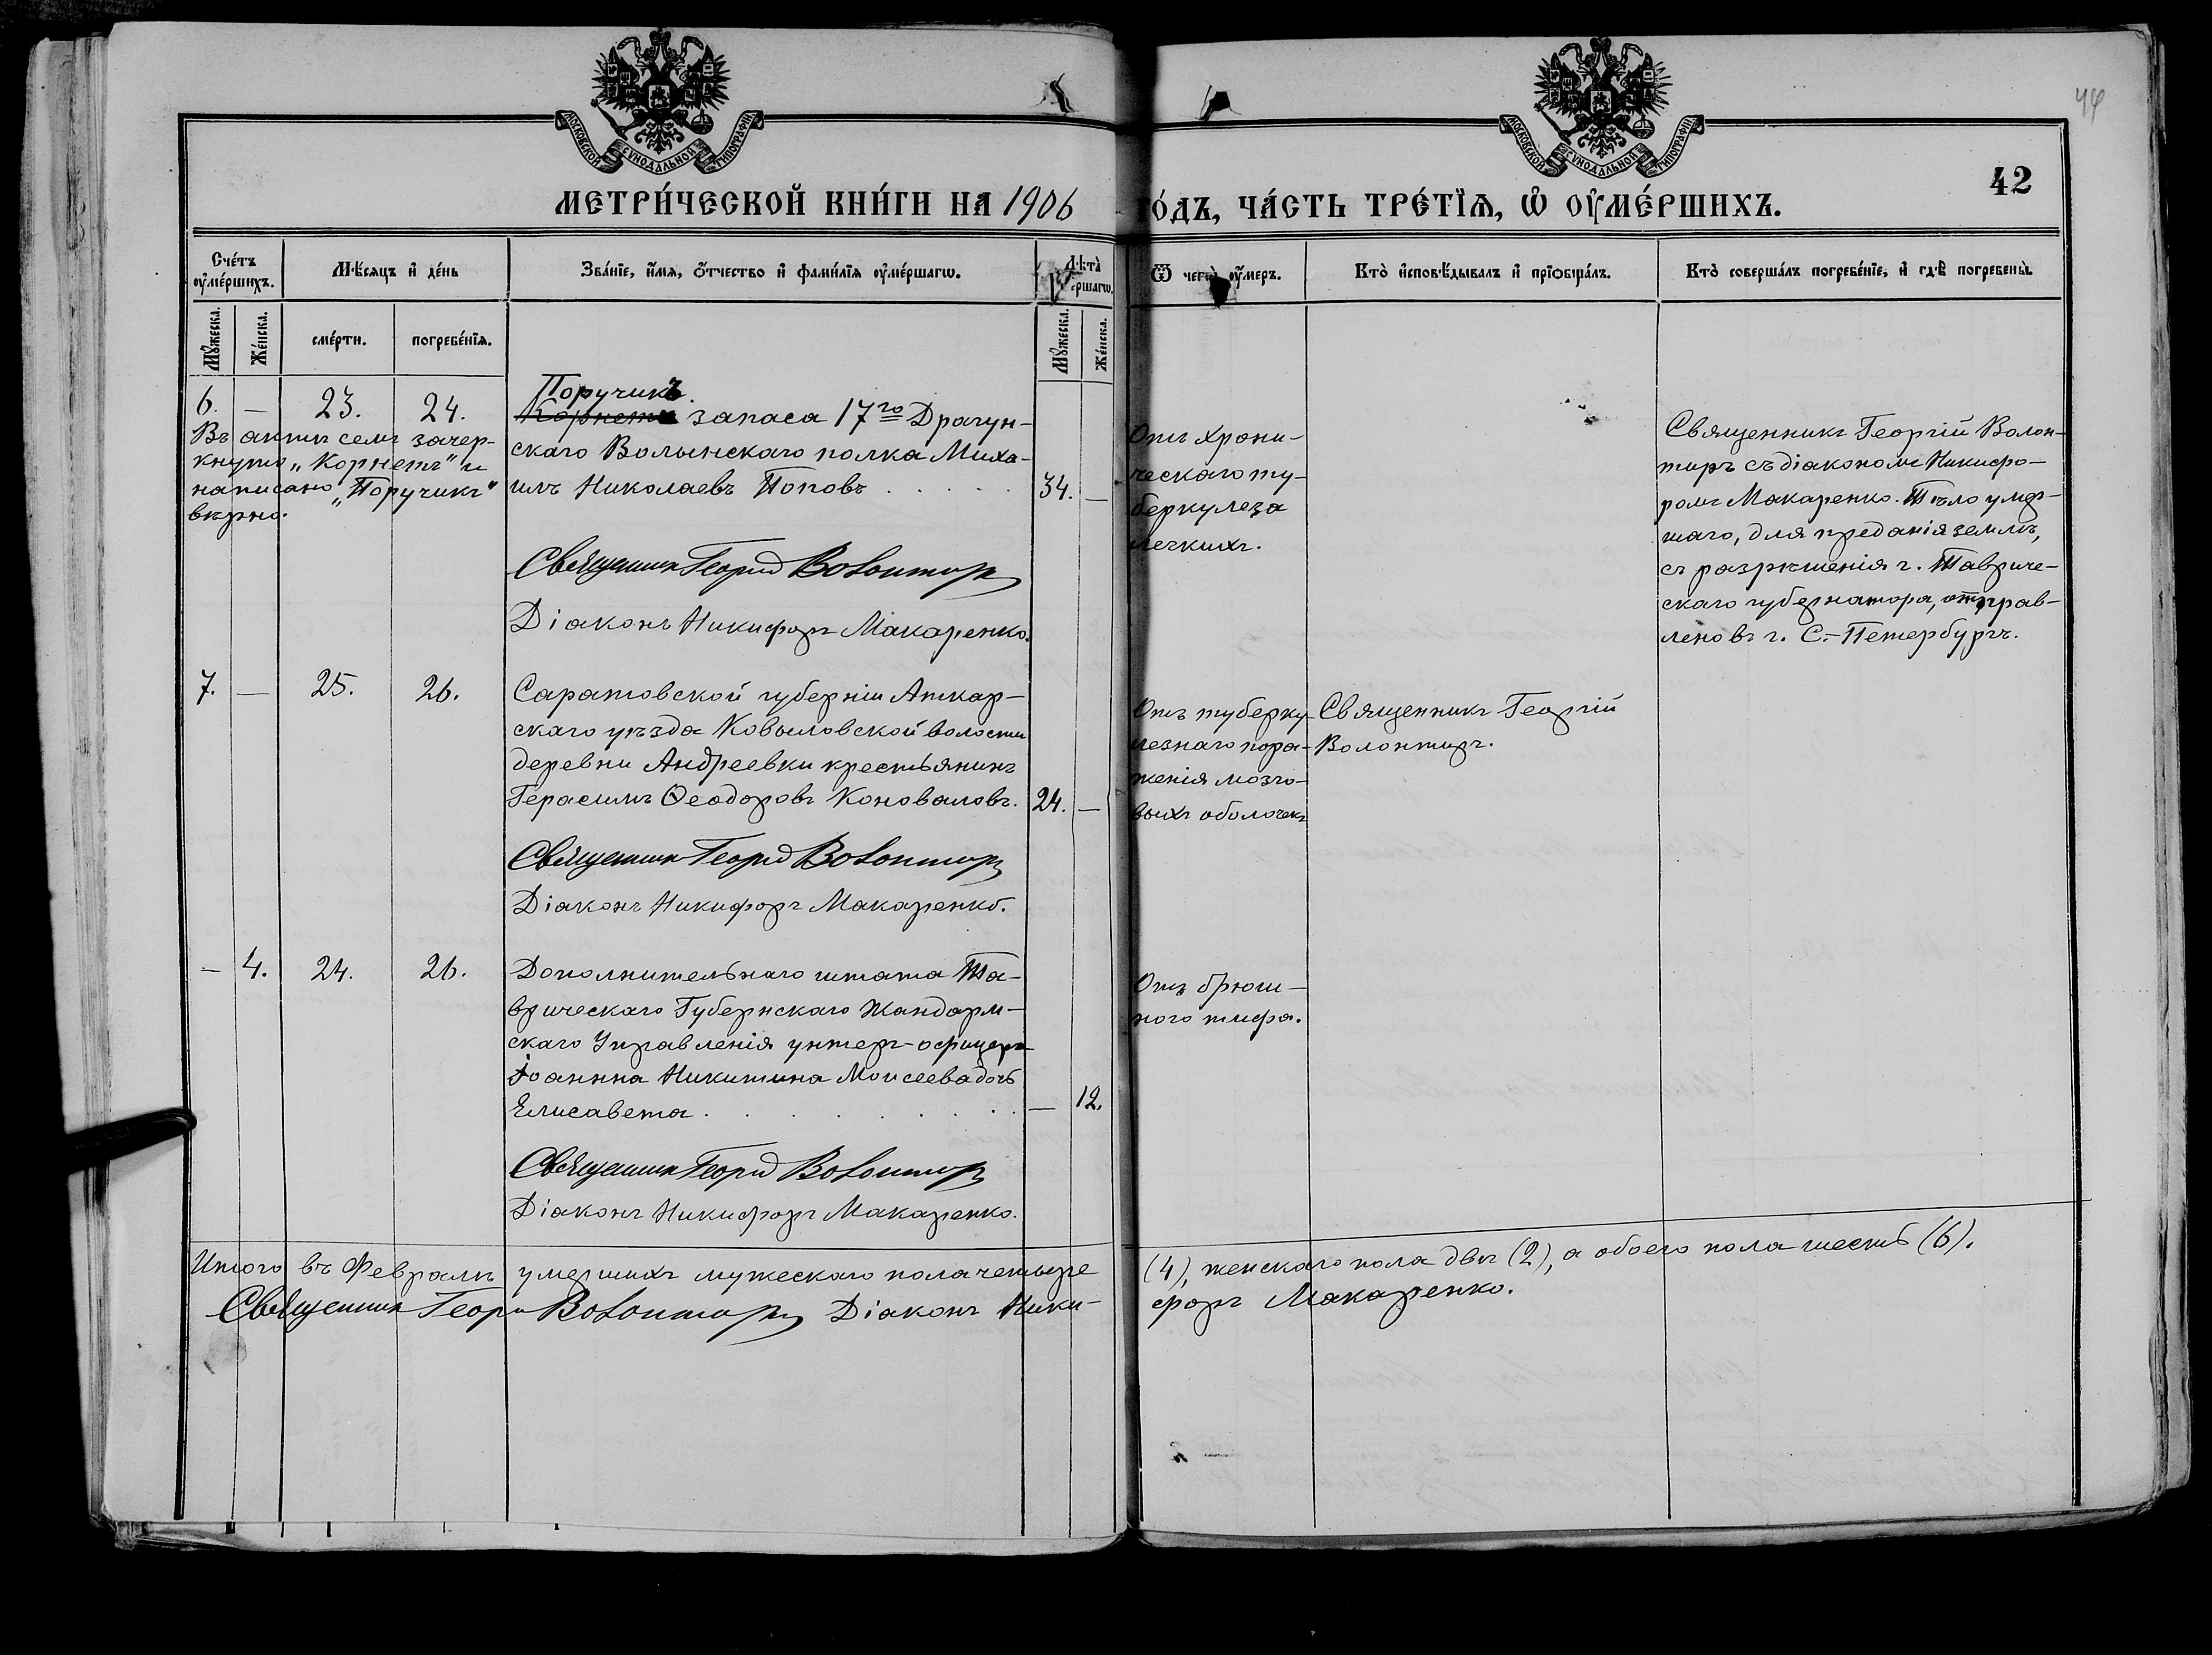 МОСКОВСКОЙ СѴНОДАЛЬНОЙ ТИПОГРАФІИ
МОСКОВСКОЙ СѴНОДАЛЬНОЙ ТИПОГРАФІИ
44
42
МЕТРИ́ЧЕСКОЙ КНИ́ГИ НА 1906
ГО́ДЪ, ЧА́СТЬ ТРЕ́ТЇѦ, Ѡ҆ ОУ҆МЕ́РШИХЪ.
Сче́тъ оу҆ме́ршихъ.
Мѣ́сяцъ и҆ де́нь
Зва́нїе, и҆́мя, ѻ҆́тчество и҆ фами́лїя оу҆ме́ршагѡ.
Лѣта̀
ершагѡ.
Ѿ чегѡ̀ оу҆́меръ.
Кто̀ и҆сповѣ́дывалъ и҆ прїѡбща́лъ.
Кто̀ соверша́лъ погребе́нїе, и҆ гдѣ̀ погребены̀.
Мꙋ́жеска.
Же́нска.
сме́рти.
погребе́нїя.
Мꙋ́жеска.
Же́нска.
6. — 23. 24.
Въ актѣ семъ зачер-
кнуто „Корнетъ" и
написано „Поручикъ"
вѣрно.
Поручикъ.
Корнетъ запаса 17го Драгун-
скаго Волынскаго полка Миха-
илъ Николаевъ Поповъ . . . . . 34. —
Священникъ Георгій Волонтиръ
Діаконъ Никифоръ Макаренко.
Отъ хрони-
ческаго ту-
беркулеза
легкихъ.
Священникъ Георгій Волон-
тиръ съ діакономъ Никифо-
ромъ Макаренко. Тѣло умер-
шаго, для преданія землѣ,
съ разрѣшенія г. Тавриче-
скаго губернатора, отправ-
лено въ г. С.-Петербургъ.
7. — 25. 26.
Саратовской губерніи Аткар-
скаго уѣзда Ковыловской волости
деревни Андреевки крестьянинъ
Герасимъ Ѳеодоровъ Коноваловъ. 24. —
Священникъ Георгій Волонтиръ
Діаконъ Никифоръ Макаренко.
Отъ туберку-
лезнаго пора-
женія мозго-
выхъ оболочекъ
Священникъ Георгій
Волонтиръ.
— 4. 24. 26.
Дополнительнаго штата Та-
врическаго Губернскаго Жандарм-
скаго Управленія унтеръ-офицера
Іоаннна Никитина Моисеева дочь
Елисавета . . . . . . . . — 12.
Священникъ Георгій Волонтиръ
Діаконъ Никифоръ Макаренко.
Отъ брюш-
ного тифа.
Итого въ Февралѣ умершихъ мужескаго пола четыре
(4), женскаго пола двѣ (2), а обоего пола шесть (6).
Священникъ Георгій Волонтиръ Діаконъ Ники-
форъ Макаренко.